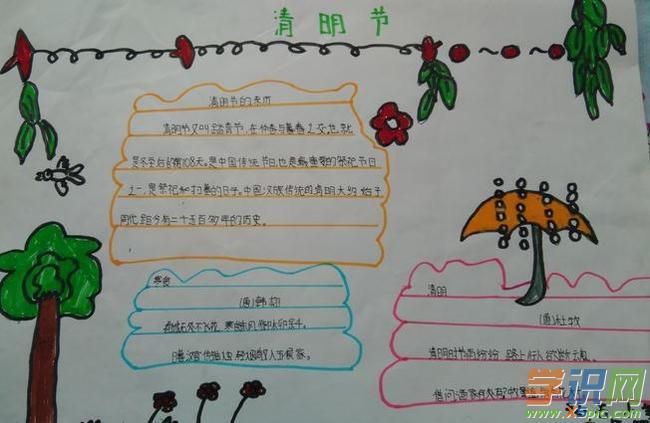 清明节
清明节的来历
清明节又叫踏青节，在仲春与暮春之交，也就
是冬至后的第108天。是中国传统节日，也是最重要的祭祀节日
之一，是祭祀和扫墓的日子。中国汉族传统的清明节大约始于
周代，距今有二千五百多年的历史。
寒食
(唐)韩翃
春城无处不飞花，寒食东风御柳斜。
日暮汉宫传蜡烛，轻烟散入五侯家。
清明
(唐)杜牧
清明时节雨纷纷，路上行人欲断魂。
借问酒家何处有?牧童
学识网
www.xspic.com